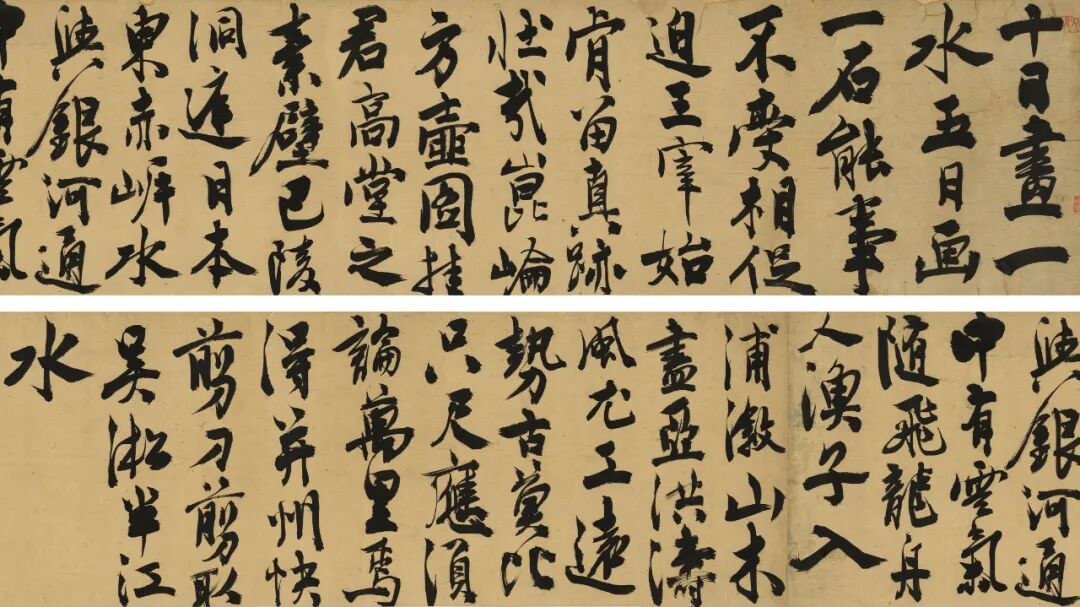 十日畫一
水五日画
一石能事
不受相促
迫王宰始
肯留真跡
壯哉崑崙
方壺图挂
君高堂之
素壁巴陵
洞庭日本
東赤岸水
與銀河通
中有雲氣
與銀河通
中有雲氣
随飛龍舟
人漁子入
浦漵山木
盡亞洪濤
風尤工遠
勢古莫比
只尺應須
論萬里焉
得并州快
剪刀剪取
吳淞半江
水